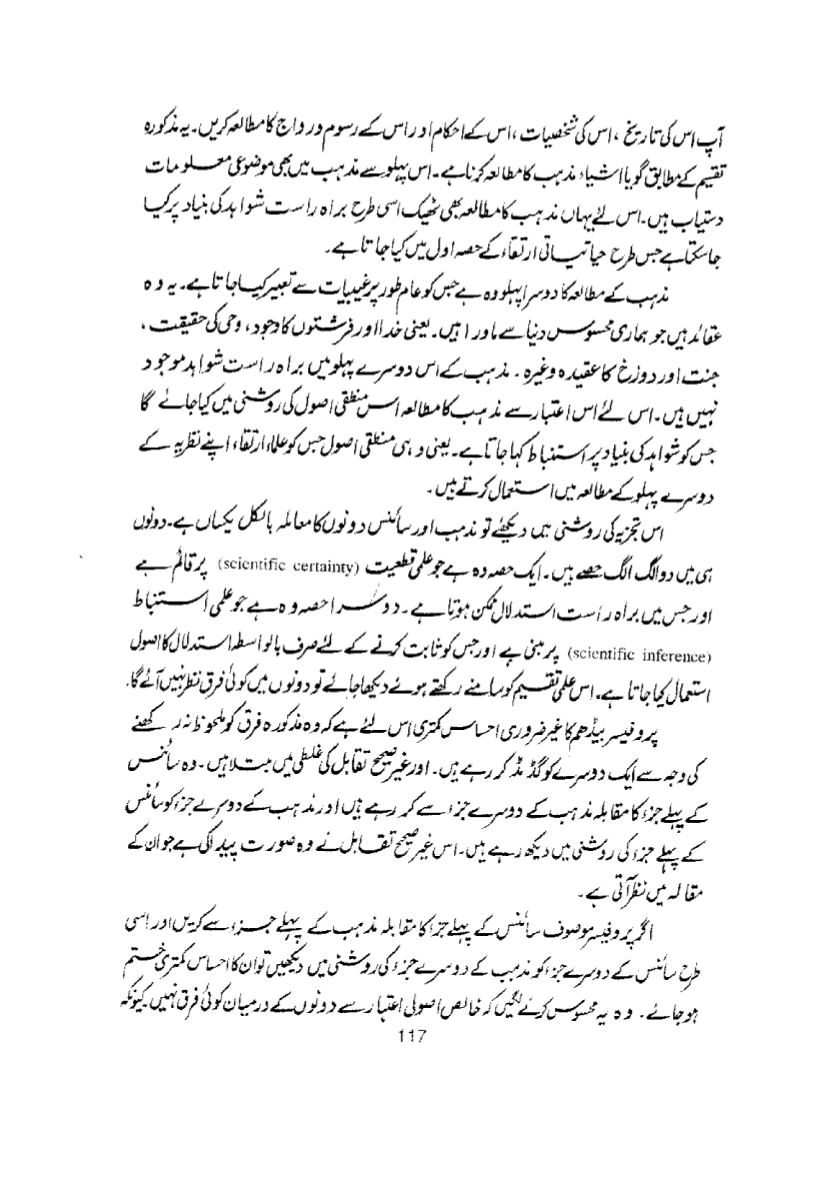 آپ اس کی تاریخ، اس کی شخصیات، اس کے احکام اور اس کے رسوم و رواج کا مطالعہ کریں۔ یہ مذکورہ
تقسیم کے مطابق گویا اشیاء مذہب کا مطالعہ کرنا ہے۔ اس پہلو سے مذہب میں بھی موضوعی معلومات
دستیاب ہیں۔ اس لئے یہاں مذہب کا مطالعہ بھی ٹھیک اسی طرح براہ راست شواہد کی بنیاد پر کیا
جاسکتا ہے جس طرح حیاتیاتی ارتقاء کے حصہ اول میں کیا جاتا ہے۔
مذہب کے مطالعہ کا دوسرا پہلو وہ ہے جس کو عام طور پر غیبیات سے تعبیر کیا جاتا ہے۔ یہ وہ
عقائد ہیں جو ہماری محسوس دنیا سے ماورا ہیں۔ یعنی خدا اور فرشتوں کا وجود، وحی کی حقیقت،
جنت اور دوزخ کا عقیدہ وغیرہ۔ مذہب کے اس دوسرے پہلو میں براہ راست شواہد موجود
نہیں ہیں۔ اس لئے اس اعتبار سے مذہب کا مطالعہ اس منطقی اصول کی روشنی میں کیا جائے گا
جس کو شواہد کی بنیاد پر استنباط کہا جاتا ہے۔ یعنی وہی منطقی اصول جس کو علماء ارتقاء اپنے نظریہ کے
دوسرے پہلو کے مطالعہ میں استعمال کرتے ہیں۔
اس تجزیہ کی روشنی میں دیکھئے تو مذہب اور سائنس دونوں کا معاملہ بالکل یکساں ہے۔ دونوں
ہی میں دو الگ الگ حصے ہیں۔ ایک حصہ وہ ہے جو علمی قطعیت (scientific certainty) پر قائم ہے
اور جس میں براہ راست استدلال ممکن ہوتا ہے۔ دوسرا حصہ وہ ہے جو علمی استنباط
(scientific inference) پر مبنی ہے اور جس کو ثابت کرنے کے لئے صرف بالواسطہ استدلال کا اصول
استعمال کیا جاتا ہے۔ اس علمی تقسیم کو سامنے رکھتے ہوئے دیکھا جائے تو دونوں میں کوئی فرق نظر نہیں آئے گا۔
پروفیسر بیڈھم کا غیر ضروری احساس کمتری اس لئے ہے کہ وہ مذکورہ فرق کو ملحوظ نہ رکھنے
کی وجہ سے ایک دوسرے کو گڈمڈ کر رہے ہیں۔ اور غیر صحیح تقابل کی غلطی میں مبتلا ہیں۔ وہ سائنس
کے پہلے جزء کا مقابلہ مذہب کے دوسرے جزء سے کر رہے ہیں اور مذہب کے دوسرے جزء کو سائنس
کے پہلے جزء کی روشنی میں دیکھ رہے ہیں۔ اس غیر صحیح تقابل نے وہ صورت پیدا کی ہے جو ان کے
مقالہ میں نظر آتی ہے۔
اگر پروفیسر موصوف سائنس کے پہلے جزء کا مقابلہ مذہب کے پہلے جزء سے کریں اور اسی
طرح سائنس کے دوسرے جزء کو مذہب کے دوسرے جزء کی روشنی میں دیکھیں تو ان کا احساس کمتری ختم
ہو جائے۔ وہ یہ محسوس کرنے لگیں کہ خالص اصولی اعتبار سے دونوں کے درمیان کوئی فرق نہیں کیونکہ
117